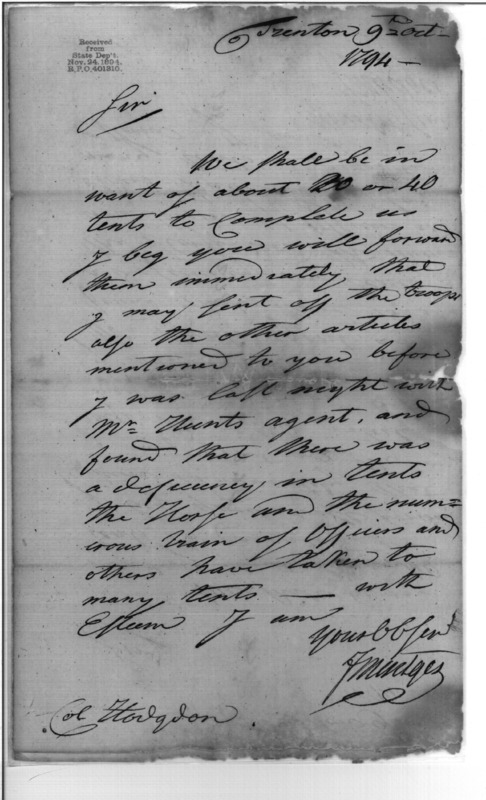 Received
from
State Dep't.
Nov. 24. 1894.
R.P.O. 401310.
Trenton 9th Oct
1794 —
Sir
We shall be in
want of about 20 or 40
tents to Complete us
I beg you will forward
them immediately that
I may sent off the troops
also the other articles
mentioned to you before
I was last night with
Mr Hunts agent, and
found that there was
a deficiency in tents
the Horse and the num=
erous train of Officers and
others have taken to
many tents — with
Esteem I am
Your Ob Servt
F Mentges
Col Hodgdon